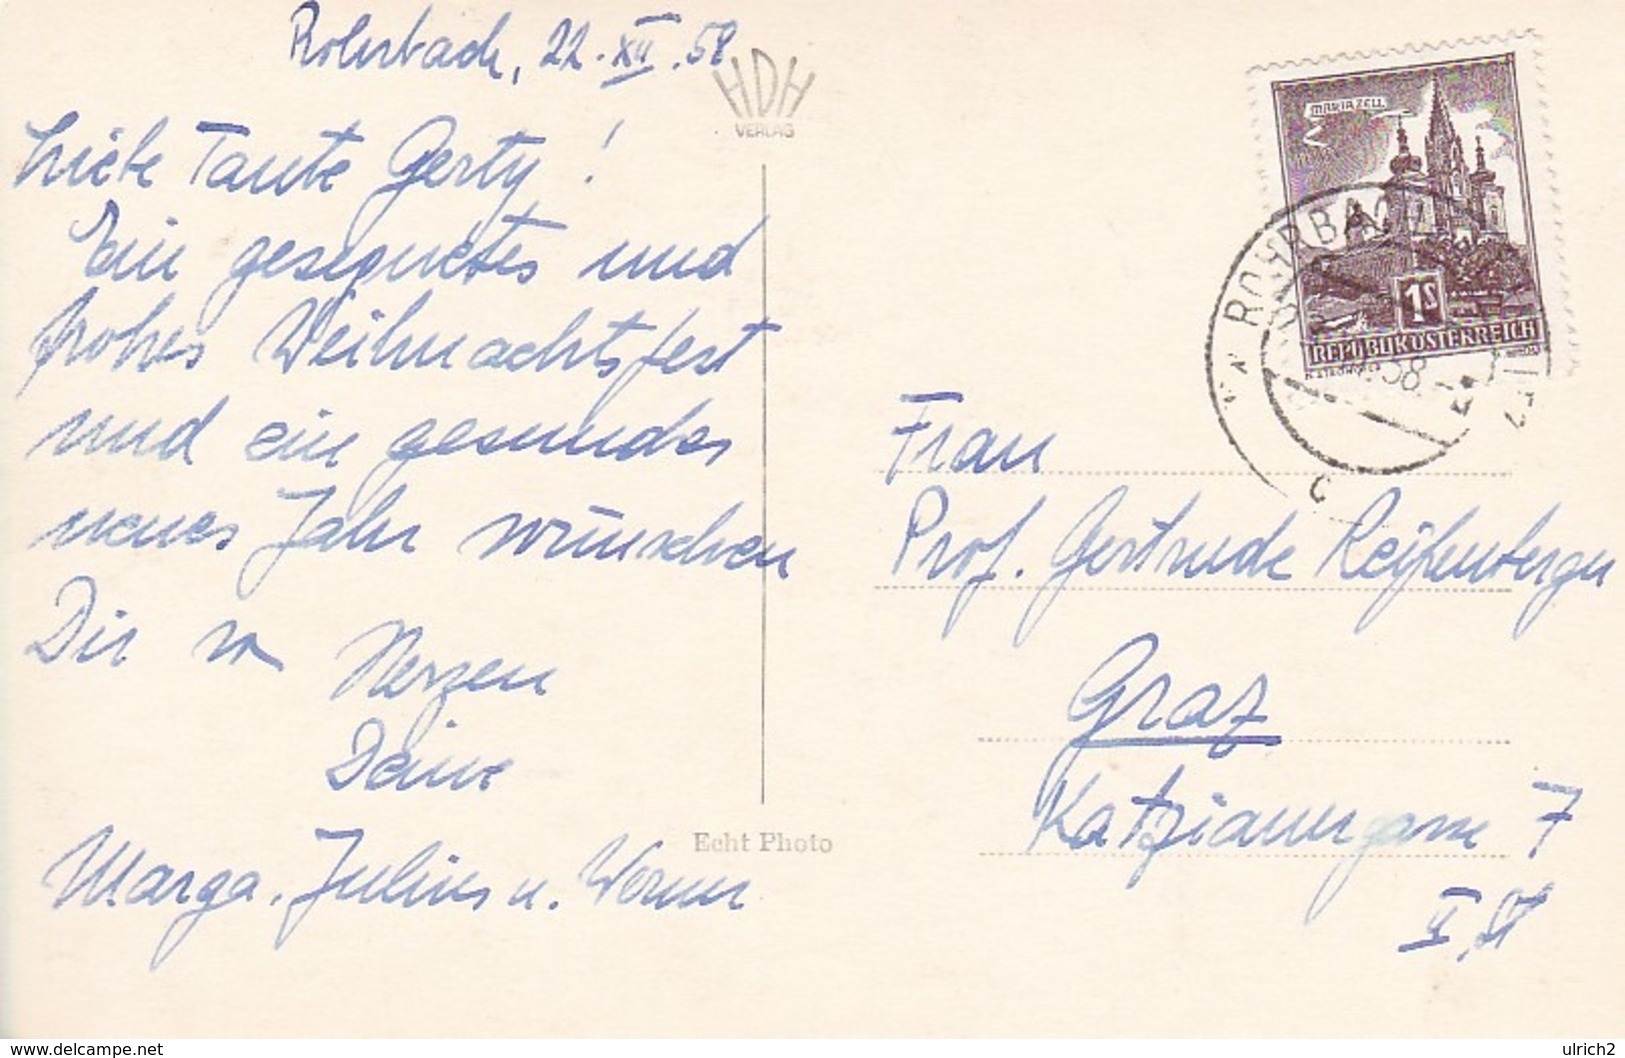 Rohrbach, 22. XII. 58
HDH
VERLAG
Liebe Tante Gerty!
Ein gesegnetes und
frohes Weihnachtsfest
und ein gesundes
neues Jahr wünschen
Dir v.
Herzen
Deine
Marga, Julius u. Werner
Echt Photo
MARIAZELL
1S
REPUBLIK ÖSTERREICH
ROHRBACH
58
Frau
Prof. Gertrude Reifenberger
Graz
Katzianergasse 7
II. St
www.delcampe.net
ulrich2